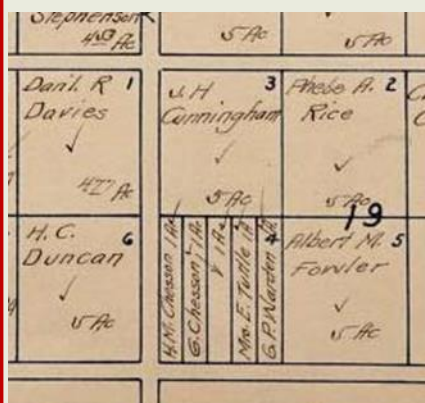 Stephenson
4 53 Ac
5 Ac
5 Ac
Danl. R 1
Davies
4 77 Ac
J. H 3
Cunningham
5 Ac
Phebe A. 2
Rice
5 Ac
C
C
19
H. C. 6
Duncan
5 Ac
H.M. Chesson 1 Ac
G. Chesson 1 Ac
1 Ac
Mrs. E. Tuttle 1 A
G. P. Warden
4
Albert M. 5
Fowler
5 Ac